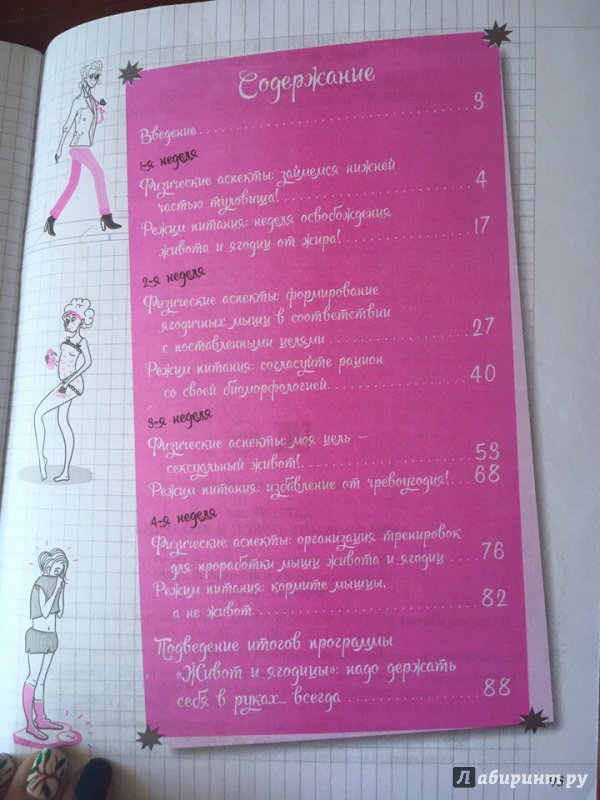 Содержание
Введение 3
1-я неделя
Физические аспекты: займемся нижней
частью туловища! 4
Режим питания: неделя освобождения
живота и ягодиц от жира! 17
2-я неделя
Физические аспекты: формирование
ягодичных мышц в соответствии
с поставленными целями 27
Режим питания: согласуйте рацион
со своей биоморфологией 40
3-я неделя
Физические аспекты: моя цель –
сексуальный живот! 53
Режим питания: избавление от чревоугодия! 68
4-я неделя
Физические аспекты: организация тренировок
для проработки мышц живота и ягодиц 76
Режим питания: кормите мышцы,
а не живот 82
Подведение итогов программы
«Живот и ягодицы»: надо держать
себя в руках... всегда 88
Лабиринт.ру